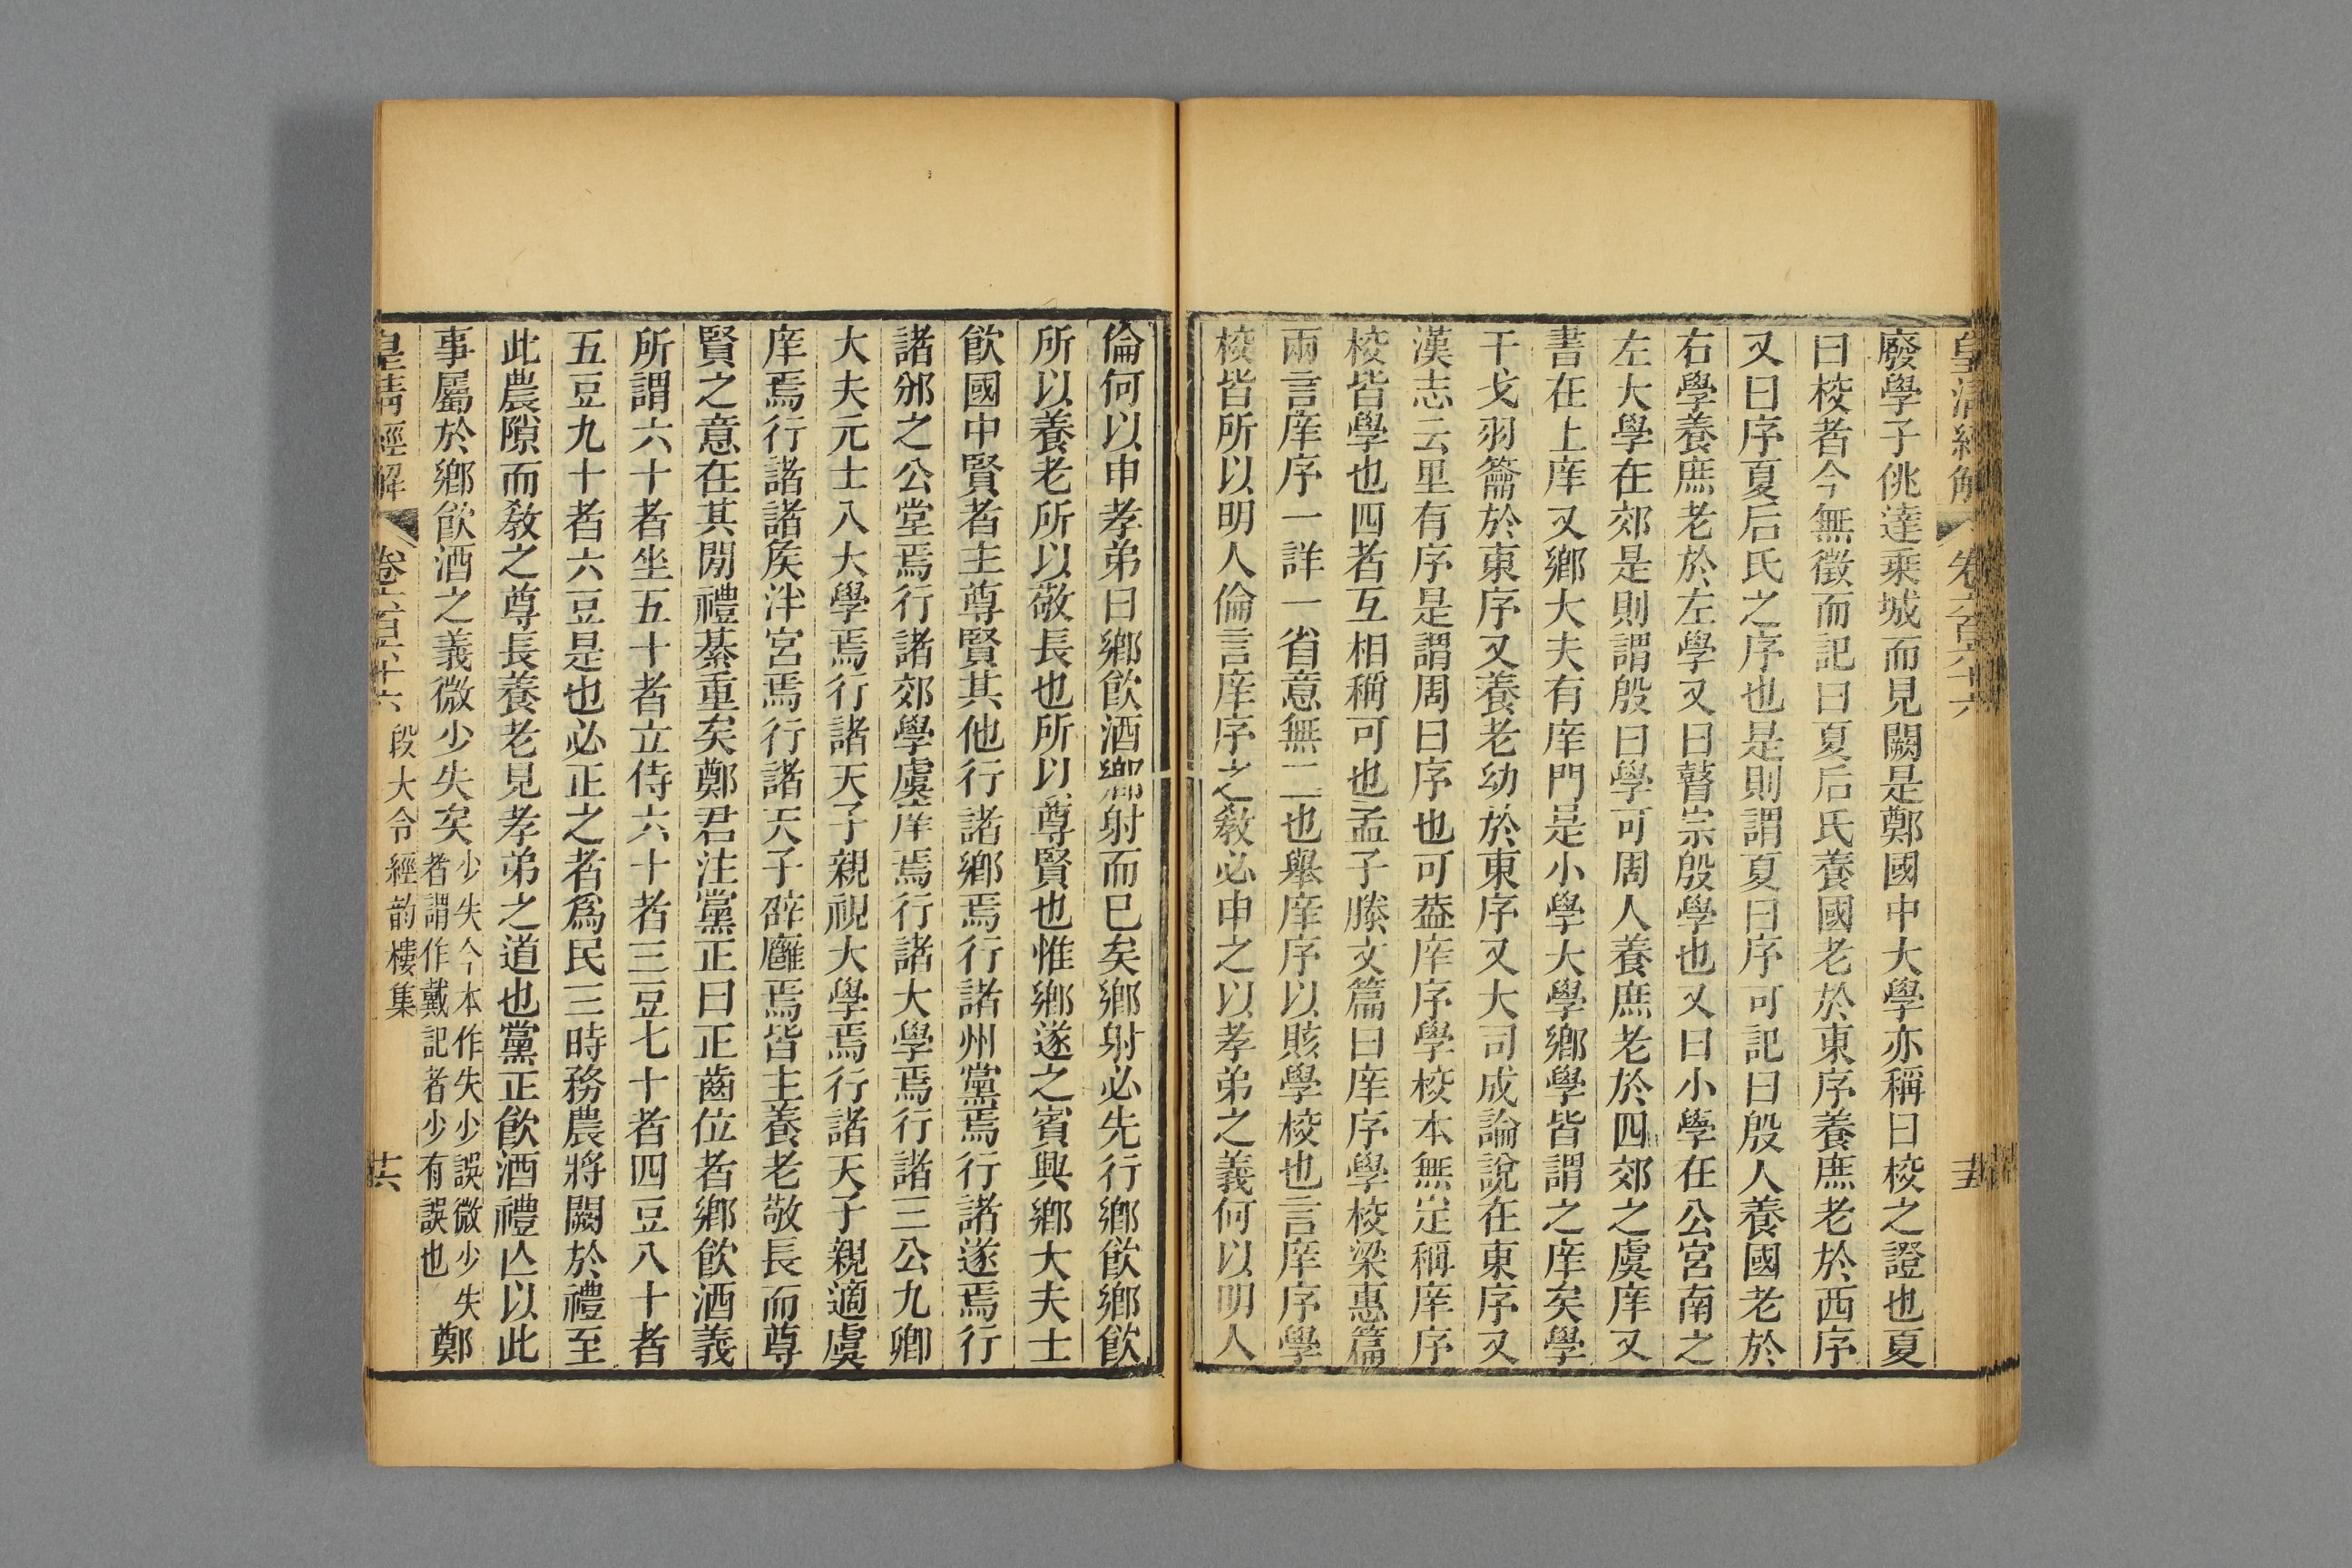 皇清經解 卷六百六十六 五
廢學子佻達乘城而見闕是鄭國中大學亦稱曰校之證也夏
曰校者今無徵而記曰夏后氏養國老於東序養庶老於西序
又曰序夏后氏之序也是則謂夏曰序可記曰殷人養國老於
右學養庶老於左學又曰瞽宗殷學也又曰小學在公宮南之
左大學在郊是則謂殷曰學可周人養庶老於四郊之虞庠又
書在上庠又鄉大夫有庠門是小學大學鄉學皆謂之庠矣學
干戈羽籥於東序又養老幼於東序又大司成論說在東序又
漢志云里有序是謂周曰序也可葢庠序學校本無定稱庠序
校皆學也四者互相稱可也孟子滕文篇曰庠序學校梁惠篇
兩言庠序一詳一省意無二也舉庠序以賅學校也言庠序學
校皆所以明人倫言庠序之教必申之以孝弟之義何以明人
倫何以申孝弟曰鄉飲酒鄉射而巳矣鄉射必先行鄉飲鄉飲
所以養老所以敬長也所以尊賢也惟鄉遂之賓興鄉大夫士
飲國中賢者主尊賢其他行諸鄉焉行諸州黨焉行諸遂焉行
諸邠之公堂焉行諸郊學虞庠焉行諸大學焉行諸三公九卿
大夫元士入大學焉行諸天子親視大學焉行諸天子親適虞
庠焉行諸諸矦泮宮焉行諸天子辟廱焉皆主養老敬長而尊
賢之意在其閒禮綦重矣鄭君注黨正曰正齒位者鄉飲酒義
所謂六十者坐五十者立侍六十者三豆七十者四豆八十者
五豆九十者六豆是也必正之者爲民三時務農將闕於禮至
此農隙而敎之尊長養老見孝弟之道也黨正飲酒禮亾以此
事屬於鄉飲酒之義微少失矣
少失今本作失少誤微少失
者謂作戴記者少有誤也
鄭
皇清經解 卷六百六十六 段大令經韵樓集 六